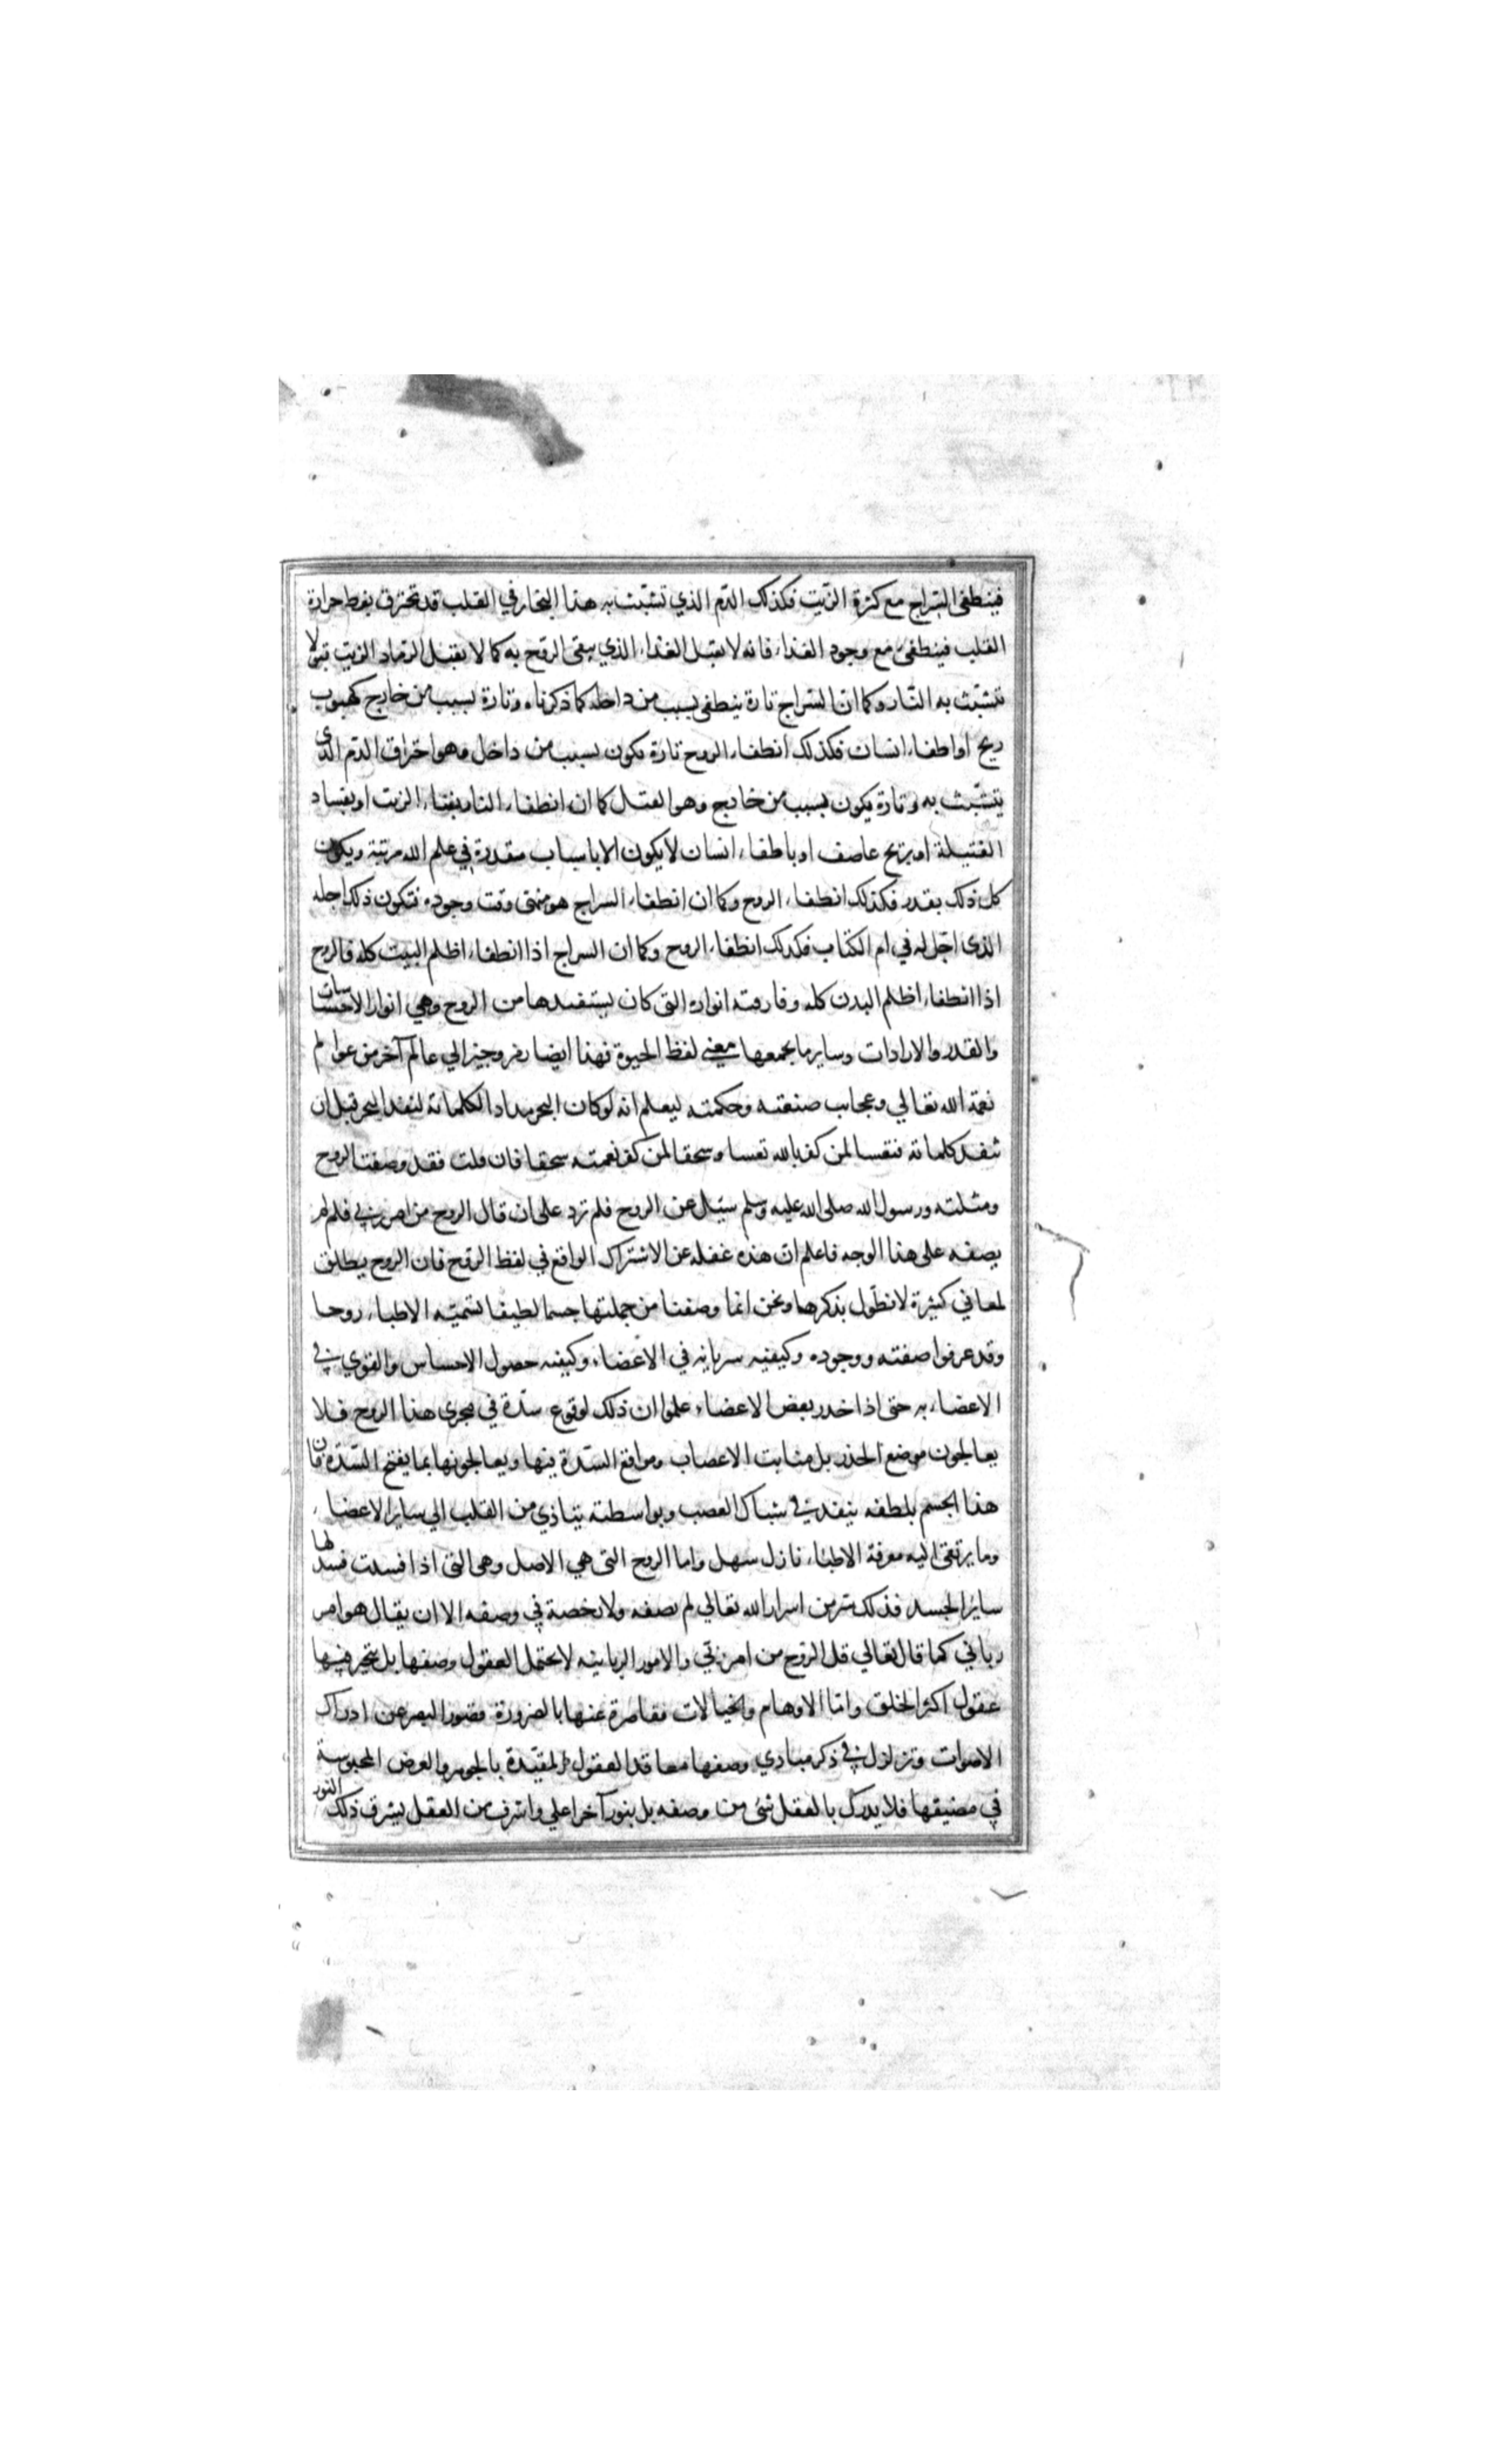 فينطفى السراج مع كثرة الزيت فكذلك الدم الذي تشبث به هذا البخار في القلب قد تحترق بفرط حرارة
القلب فينطفى مع وجود الغذاء فانه لا يقبل الغذاء الذي يبقى الروح به كما لا يقبل الرماد الزيت قبولا
تتشبث به النار وكما ان السراج تارة ينطفى بسبب من داخله كما ذكرناه وتارة بسبب من خارج كهبوب
ريح او اطفاء انسان فكذلك انطفاء الروح تارة يكون بسبب من داخل وهو احتراق الدم الذى
يتشبث به وتارة يكون بسبب من خارج وهو القتل كما ان انطفاء النار بفناء الزيت او بفساد
الفتيلة او بريح عاصف او باطفاء انسان لا يكون الا باسباب مقدرة في علم الله مرتبة ويكون
كل ذلك بقدر فكذلك انطفاء الروح وكما ان انطفاء السراج هو منتهى وقت وجوده فتكون ذلك اجله
الذى اجّل له في ام الكتاب فكذلك انطفاء الروح وكما ان السراج اذا انطفاء اظلم البيت كله فالروح
اذا انطفاء اظلم البدن كله وفارقته انواره التى كان يستفيدها من الروح وهي انوار الاحساسات
والقدر والارادات وساير ما يجمعها معنى لفظ الحيوة فهذا ايضا رمز وجيز الي عالم آخر من عوالم
نعمة الله تعالي وعجايب صنعته وحكمته ليعلم انه لوكان البحر مدادا لكلماته لنفد البحر قبل ان
تنفد كلماته فتعسا لمن كفر بالله تعسا وسحقا لمن كفر نعمته سحقا فان قلت فقد وصفت الروح
ومثلته ورسول الله صلى الله عليه وسلم سئل عن الروح فلم يزد على ان قال الروح من امر ربي فلم لم
يصفه على هذا الوجه فاعلم ان هذه غفلة عن الاشتراك الواقع في لفظ الروح فان الروح يطلق
لمعاني كثيرة لا نطول بذكرها ونحن انما وصفنا من جملتها جسما لطيفا تسميه الاطباء روحا
وقد عرفوا صفته ووجوده وكيفية سريانه في الاعضاء وكيفيه حصول الاحساس والقوي في
الاعضاء به حتى اذا خدر بعض الاعضاء علموا ان ذلك لوقوع سدة في مجرى هذا الروح فلا
يعالجون موضع الخدر بل منابت الاعصاب ومواقع السدة فيها ويعالجونها بما يفتح السدة فان
هذا الجسم بلطفه ينفد في شباك العصب وبواسطته يتاذي من القلب الي ساير الاعضاء
وما يرتقى اليه معرفة الاطباء نازل سهل واما الروح التى هي الاصل وهى التى اذا فسدت فسد لها
سائر الجسد فذلك سر من اسرار الله تعالي لم نصفه ولا رخصة في وصفه الا ان يقال هو امر
رباني كما قال تعالي قل الروح من امر ربي والامور الربانيه لا تحتمل العقول وصفها بل تتحير فيها
عقول اكثر الخلق واما الاوهام والخيالات فقاصرة عنها بالضرورة قصور البصر عن ادراك
الاصوات وتزلزل في ذكر مبادي وصفها معاقد العقول المقيدة بالجوهر والعرض المحبوسة
في مضيقها فلا يدرك بالعقل شئ من وصفه بل بنور آخر اعلي واشرف من العقل يشرق ذلك النور